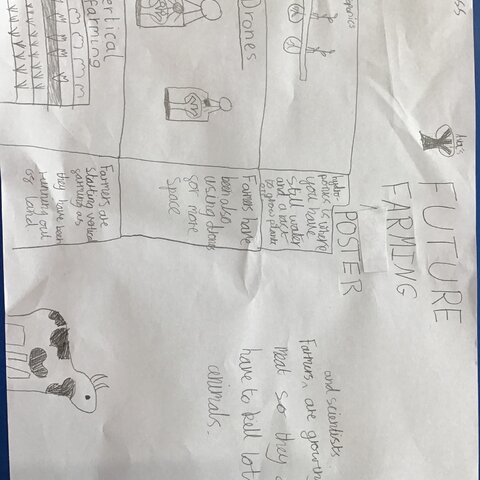 FUTURE
FARMING
POSTER
hydro-
ponics is where
you have
still water
and a
to grow plants
Drones
Farmers have
been also
using drones
for more
space
Vertical
farming
Farmers are
starting vertical
farming as
they have been
running out
of land
and scientists
Farmers ^ are growing
meat so they
have to kell lots
animals.